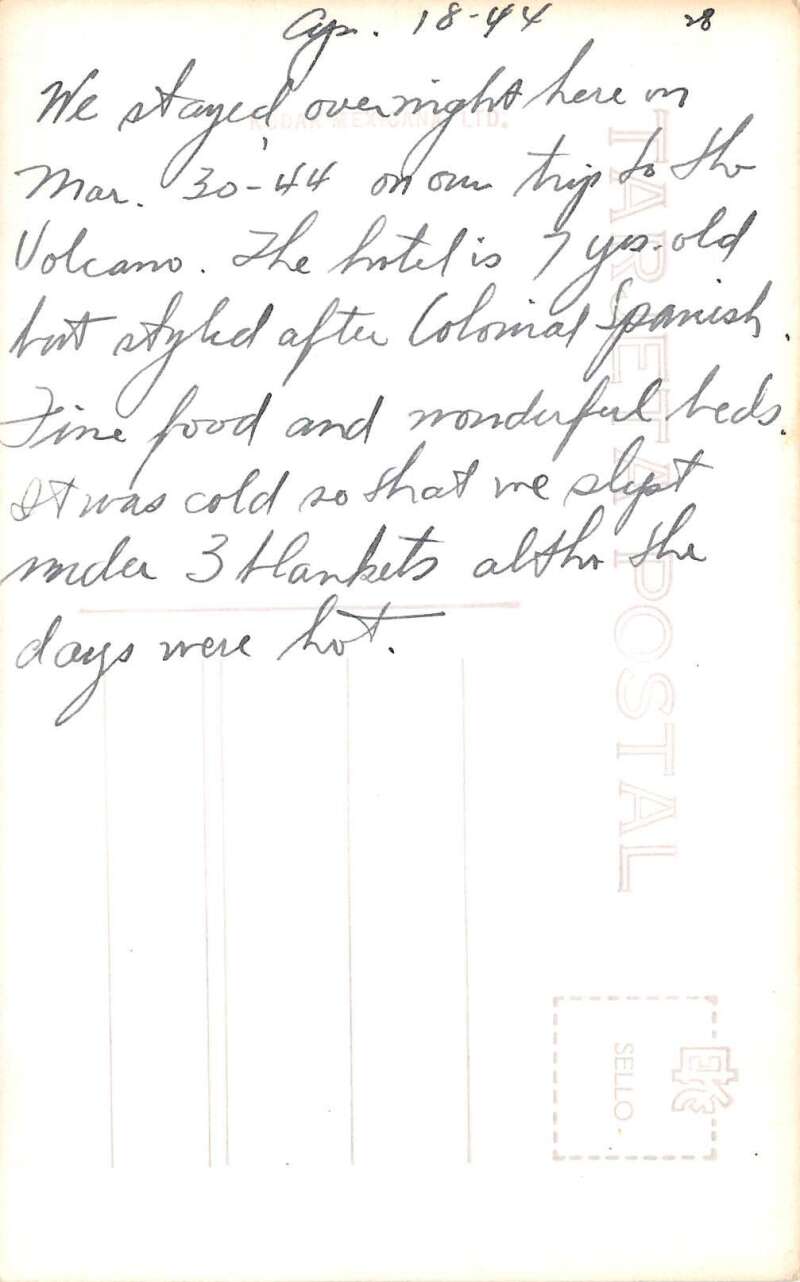 Apr. 18-44
28
We stayed overnight here on
Mar. 30-44 on our trip to the
Volcano. The hotel is 7 yrs. old
but styled after Colonial Spanish.
Fine food and wonderful beds.
It was cold so that we slept
under 3 blankets altho the
days were hot.
KODAK MEXICANA, LTD.
TARJETA POSTAL
SELLO.